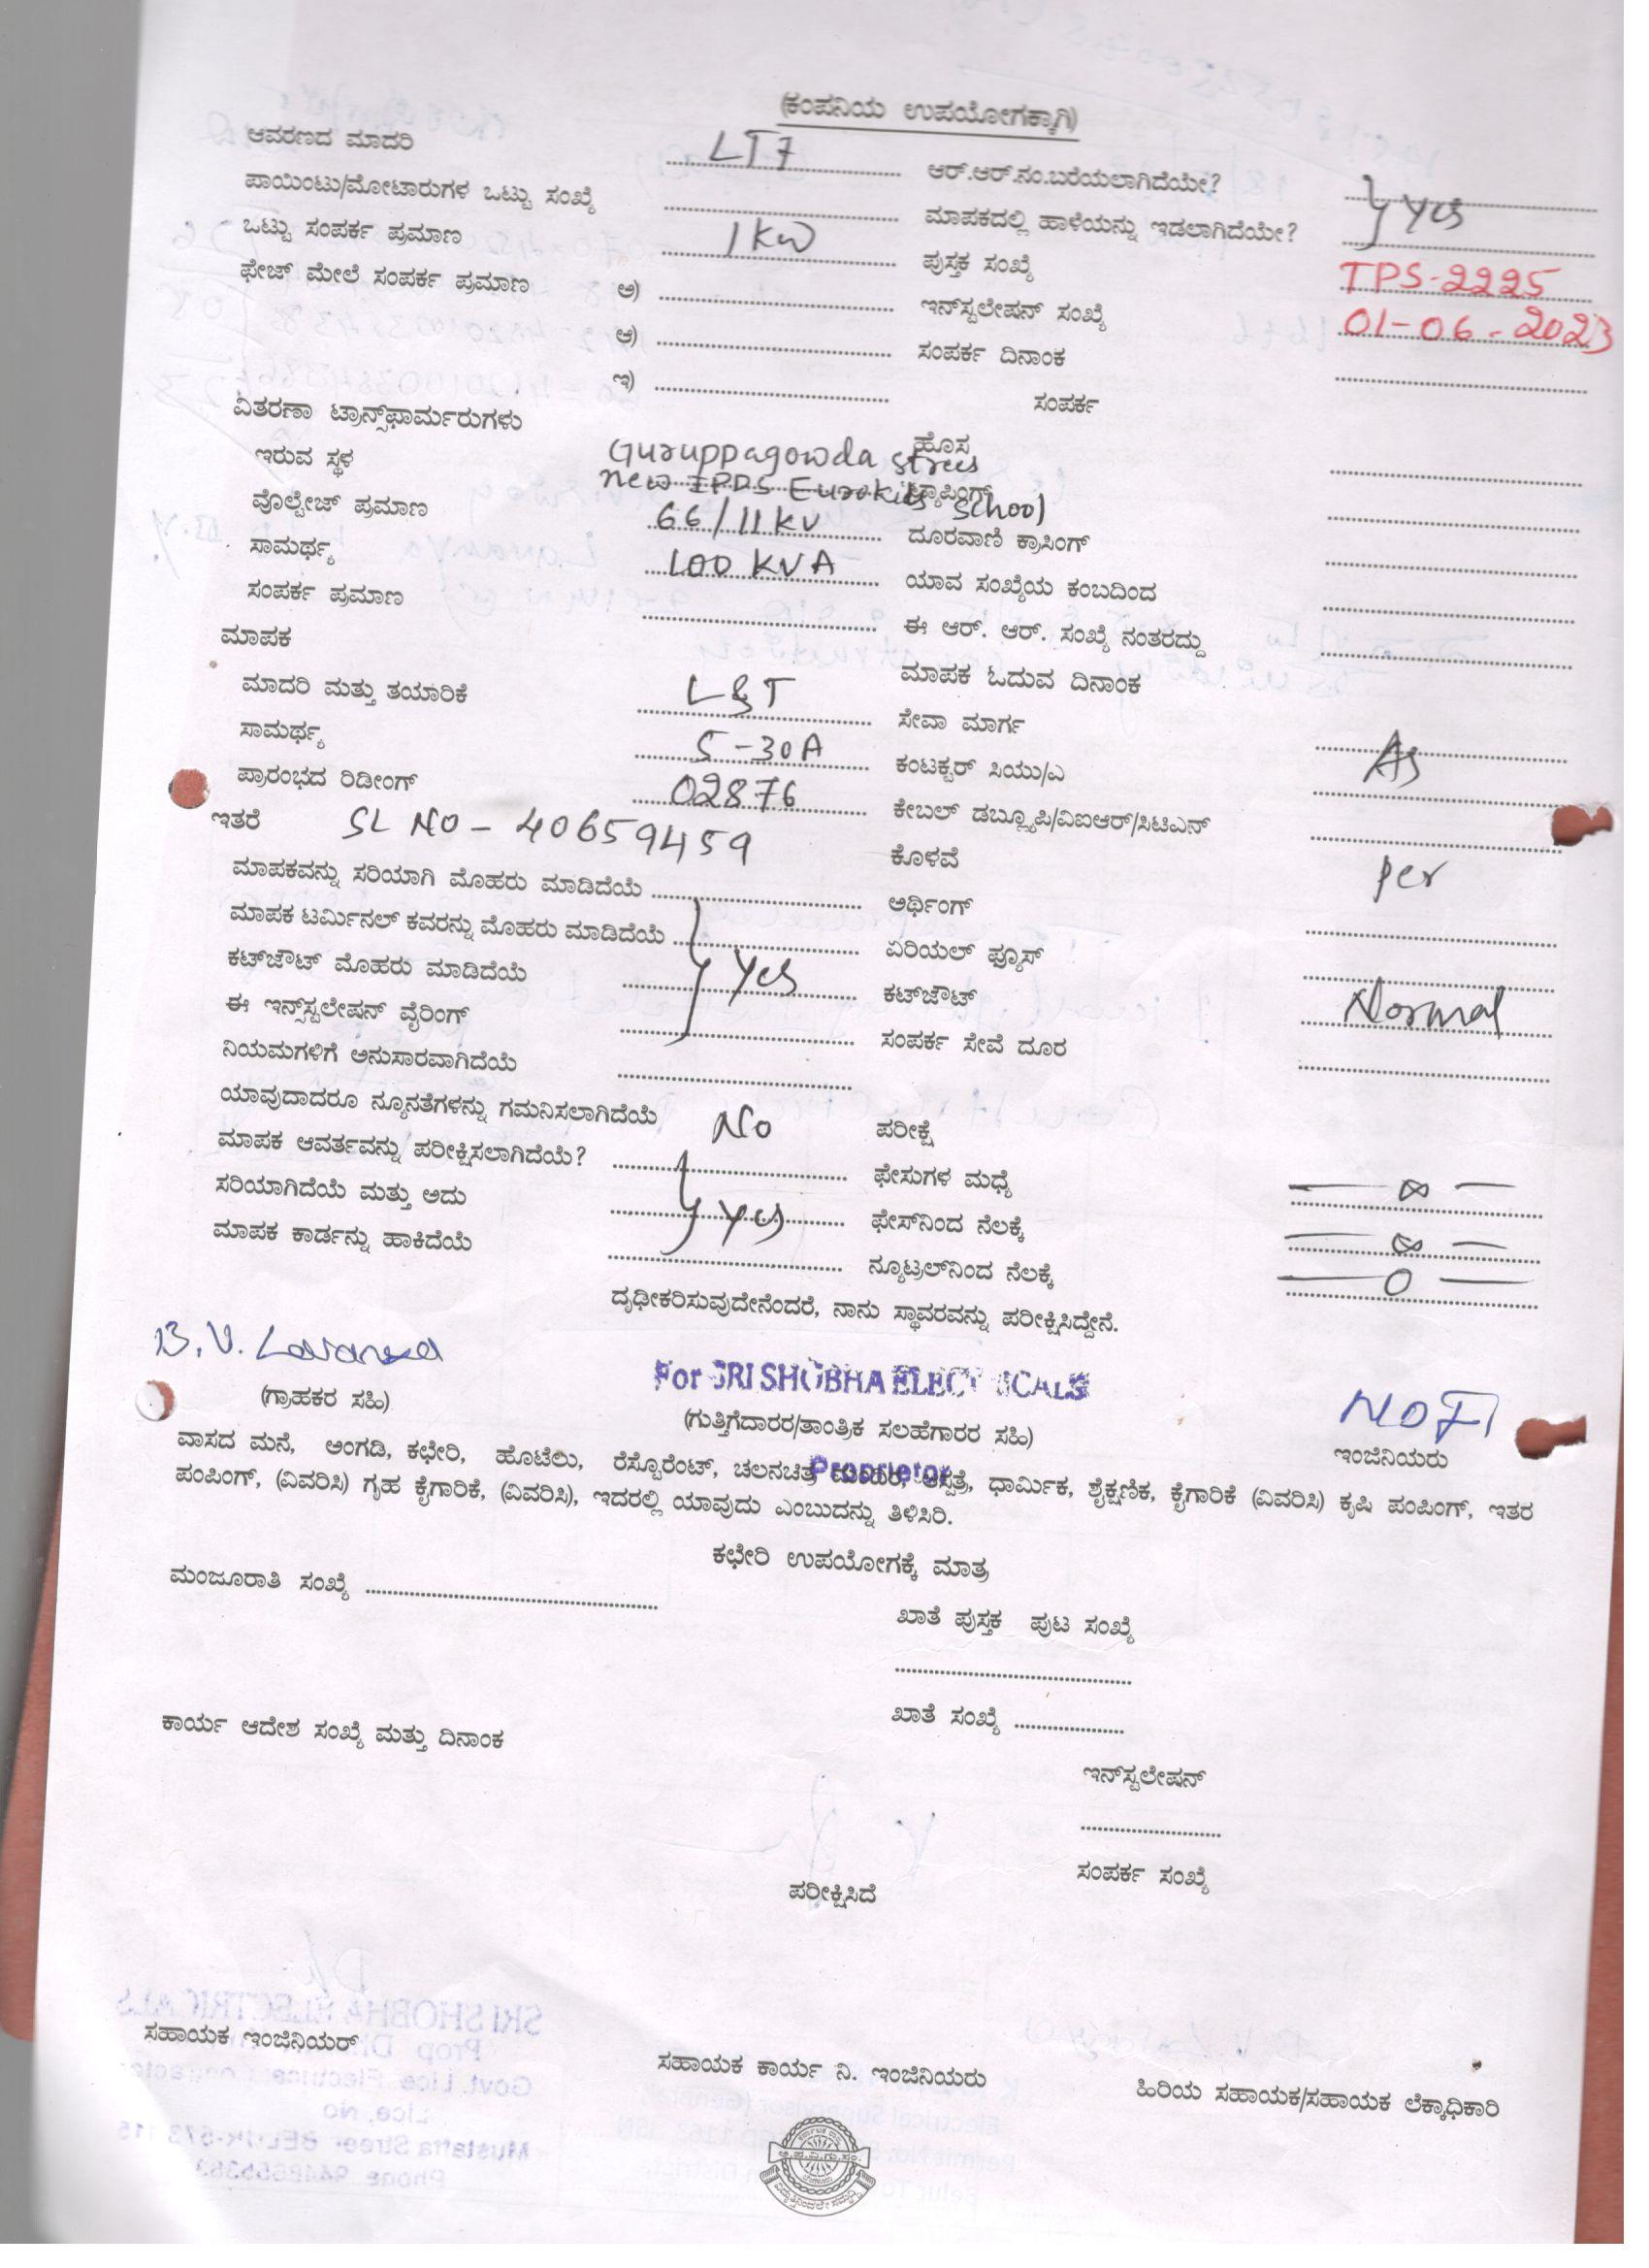 (ಕಂಪನಿಯ ಉಪಯೋಗಕ್ಕಾಗಿ)
ಆವರಣದ ಮಾದರಿ LT7 ಆರ್.ಆರ್.ನಂ.ಬರೆಯಲಾಗಿದೆಯೇ?
ಪಾಯಿಂಟು/ಮೋಟಾರುಗಳ ಒಟ್ಟು ಸಂಖ್ಯೆ ಮಾಪಕದಲ್ಲಿ ಹಾಳೆಯನ್ನು ಇಡಲಾಗಿದೆಯೇ? Yes
ಒಟ್ಟು ಸಂಪರ್ಕ ಪ್ರಮಾಣ 1 KW ಪುಸ್ತಕ ಸಂಖ್ಯೆ TPS-2225
ಫೇಜ್ ಮೇಲೆ ಸಂಪರ್ಕ ಪ್ರಮಾಣ ಅ) ಇನ್‌ಸ್ಟಲೇಷನ್ ಸಂಖ್ಯೆ 01-06-2023
ಆ) ಸಂಪರ್ಕ ದಿನಾಂಕ
ಇ) ಸಂಪರ್ಕ
ವಿತರಣಾ ಟ್ರಾನ್ಸ್‌ಫಾರ್ಮರುಗಳು ಹೊಸ
ಇರುವ ಸ್ಥಳ Guruppagowda Street
new IPDS Eurokids School ಟ್ಯಾಪಿಂಗ್
ವೊಲ್ಟೇಜ್ ಪ್ರಮಾಣ 66/11KV ದೂರವಾಣಿ ಕ್ರಾಸಿಂಗ್
ಸಾಮರ್ಥ್ಯ 100 KVA ಯಾವ ಸಂಖ್ಯೆಯ ಕಂಬದಿಂದ
ಸಂಪರ್ಕ ಪ್ರಮಾಣ ಈ ಆರ್. ಆರ್. ಸಂಖ್ಯೆ ನಂತರದ್ದು
ಮಾಪಕ ಮಾಪಕ ಓದುವ ದಿನಾಂಕ
ಮಾದರಿ ಮತ್ತು ತಯಾರಿಕೆ L&T ಸೇವಾ ಮಾರ್ಗ
ಸಾಮರ್ಥ್ಯ 5-30A ಕಂಟಕ್ಟರ್ ಸಿಯು/ಎ As
ಪ್ರಾರಂಭದ ರಿಡೀಂಗ್ 02876 ಕೇಬಲ್ ಡಬ್ಲ್ಯೂಪಿ/ವಿಐಆರ್/ಸಿಟಿಎನ್
ಇತರೆ SL NO - 40659459 ಕೊಳವೆ per
ಮಾಪಕವನ್ನು ಸರಿಯಾಗಿ ಮೊಹರು ಮಾಡಿದೆಯೆ ಅರ್ಥಿಂಗ್
ಮಾಪಕ ಟರ್ಮಿನಲ್ ಕವರನ್ನು ಮೊಹರು ಮಾಡಿದೆಯೆ ಏರಿಯಲ್ ಫ್ಯೂಸ್
ಕಟ್‌ಔಟ್ ಮೊಹರು ಮಾಡಿದೆಯೆ Yes ಕಟ್‌ಔಟ್ Normal
ಈ ಇನ್ಸ್‌ಸ್ಟಲೇಷನ್ ವೈರಿಂಗ್ ಸಂಪರ್ಕ ಸೇವೆ ದೂರ
ನಿಯಮಗಳಿಗೆ ಅನುಸಾರವಾಗಿದೆಯೆ
ಯಾವುದಾದರೂ ನ್ಯೂನತೆಗಳನ್ನು ಗಮನಿಸಲಾಗಿದೆಯೆ No ಪರೀಕ್ಷೆ
ಮಾಪಕ ಆವರ್ತವನ್ನು ಪರೀಕ್ಷಿಸಲಾಗಿದೆಯೆ? ಫೇಸುಗಳ ಮಧ್ಯೆ ∞
ಸರಿಯಾಗಿದೆಯೆ ಮತ್ತು ಅದು Yes ಫೇಸ್‌ನಿಂದ ನೆಲಕ್ಕೆ ∞
ಮಾಪಕ ಕಾರ್ಡನ್ನು ಹಾಕಿದೆಯೆ ನ್ಯೂಟ್ರಲ್‌ನಿಂದ ನೆಲಕ್ಕೆ 0
ದೃಢೀಕರಿಸುವುದೇನೆಂದರೆ, ನಾನು ಸ್ಥಾವರವನ್ನು ಪರೀಕ್ಷಿಸಿದ್ದೇನೆ.
B.V. Lavanya For SRI SHOBHA ELECTRICALS
(ಗ್ರಾಹಕರ ಸಹಿ) (ಗುತ್ತಿಗೆದಾರರ/ತಾಂತ್ರಿಕ ಸಲಹೆಗಾರರ ಸಹಿ) ಇಂಜಿನಿಯರು
Proprietor
ವಾಸದ ಮನೆ, ಅಂಗಡಿ, ಕಛೇರಿ, ಹೊಟೆಲು, ರೆಸ್ಟೊರೆಂಟ್, ಚಲನಚಿತ್ರ ಆಸ್ಪತ್ರೆ, ಧಾರ್ಮಿಕ, ಶೈಕ್ಷಣಿಕ, ಕೈಗಾರಿಕೆ (ವಿವರಿಸಿ) ಕೃಷಿ ಪಂಪಿಂಗ್, ಇತರ
ಪಂಪಿಂಗ್, (ವಿವರಿಸಿ) ಗೃಹ ಕೈಗಾರಿಕೆ, (ವಿವರಿಸಿ), ಇದರಲ್ಲಿ ಯಾವುದು ಎಂಬುದನ್ನು ತಿಳಿಸಿರಿ.
ಕಛೇರಿ ಉಪಯೋಗಕ್ಕೆ ಮಾತ್ರ
ಮಂಜೂರಾತಿ ಸಂಖ್ಯೆ
ಖಾತೆ ಪುಸ್ತಕ ಪುಟ ಸಂಖ್ಯೆ
ಖಾತೆ ಸಂಖ್ಯೆ
ಕಾರ್ಯ ಆದೇಶ ಸಂಖ್ಯೆ ಮತ್ತು ದಿನಾಂಕ
ಇನ್‌ಸ್ಟಲೇಷನ್
ಸಂಪರ್ಕ ಸಂಖ್ಯೆ
ಪರೀಕ್ಷಿಸಿದೆ
ಸಹಾಯಕ ಇಂಜಿನಿಯರ್ ಸಹಾಯಕ ಕಾರ್ಯ ನಿ. ಇಂಜಿನಿಯರು ಹಿರಿಯ ಸಹಾಯಕ/ಸಹಾಯಕ ಲೆಕ್ಕಾಧಿಕಾರಿ